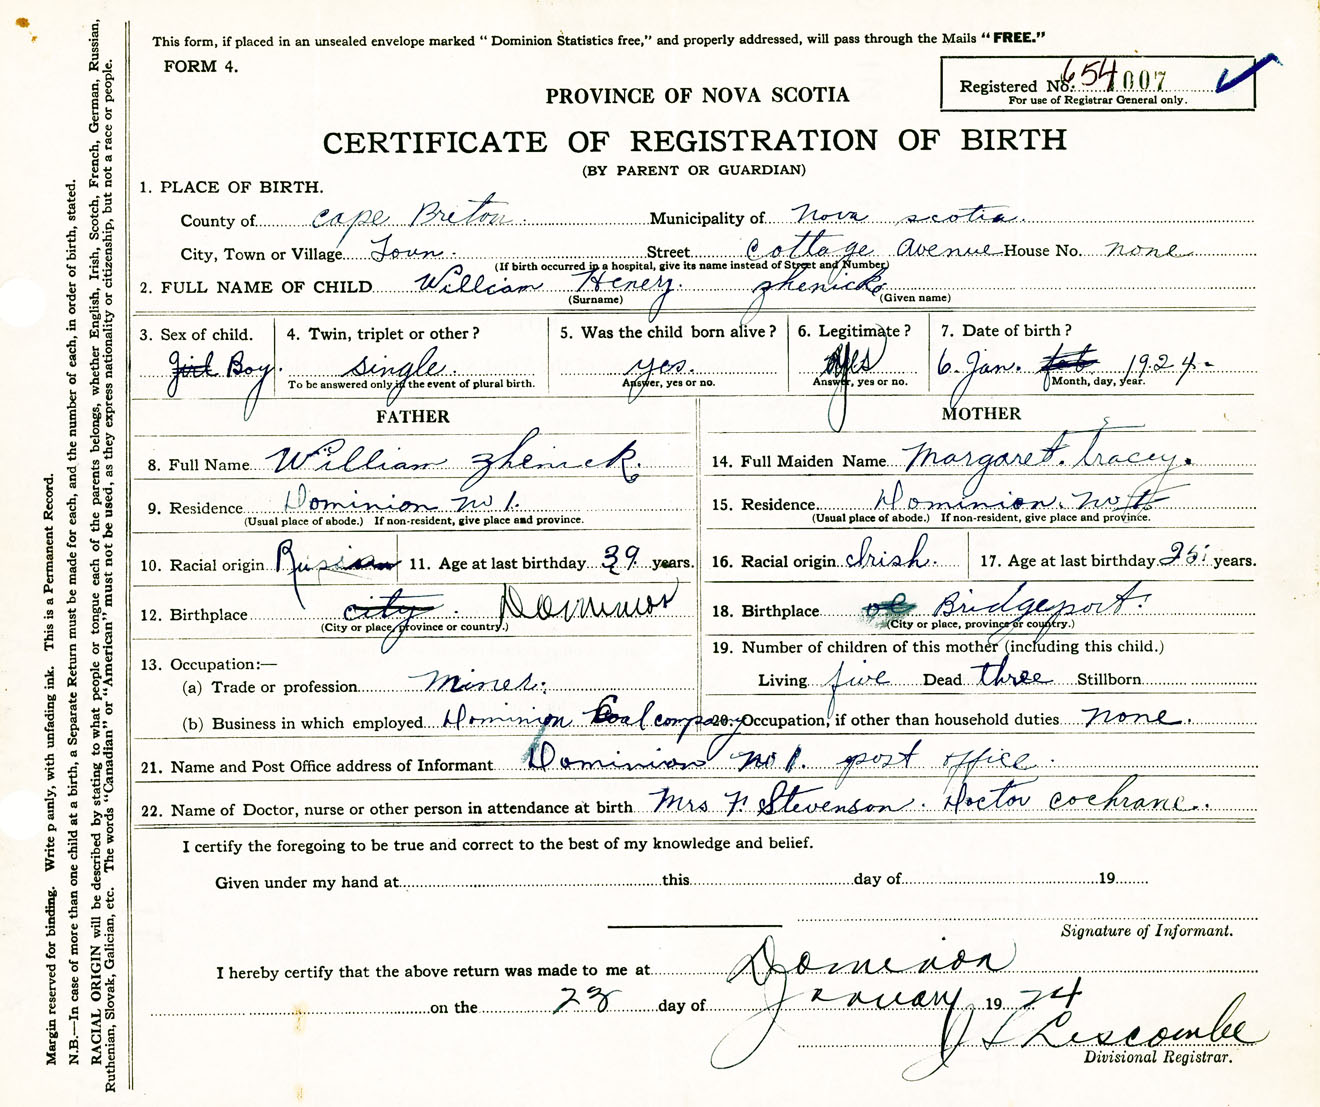 This form, if placed in an unsealed envelope marked "Dominion Statistics free," and properly addressed, will pass through the Mails "FREE."
FORM 4.
Registered No. 654 1007
For use of Registrar General only.
PROVINCE OF NOVA SCOTIA
CERTIFICATE OF REGISTRATION OF BIRTH
(BY PARENT OR GUARDIAN)
1. PLACE OF BIRTH.
County of Cape Breton. Municipality of Nova scotia.
City, Town or Village Town. Street Cottage Avenue House No. none
(If birth occurred in a hospital, give its name instead of Street and Number)
2. FULL NAME OF CHILD William Henery. Zhenick
(Surname) (Given name)
3. Sex of child. 4. Twin, triplet or other? 5. Was the child born alive? 6. Legitimate? 7. Date of birth?
Girl Boy. single. yes. yes 6. Jan. feb 1924.
To be answered only in the event of plural birth. Answer, yes or no. Answer, yes or no. Month, day, year.
FATHER MOTHER
8. Full Name William Zhenick. 14. Full Maiden Name Margaret. Tracey.
9. Residence Dominion No 1. 15. Residence Dominion. No 1
(Usual place of abode.) If non-resident, give place and province. (Usual place of abode.) If non-resident, give place and province.
10. Racial origin Russian 11. Age at last birthday 39. years. 16. Racial origin Irish. 17. Age at last birthday 25. years.
12. Birthplace city. Dominion 18. Birthplace Bridgeport.
(City or place, province or country.) (City or place, province or country.)
19. Number of children of this mother (including this child.)
13. Occupation:—
(a) Trade or profession Miner. Living five Dead three Stillborn
(b) Business in which employed Dominion Coal company 20. Occupation, if other than household duties none.
21. Name and Post Office address of Informant Dominion No 1. post office.
22. Name of Doctor, nurse or other person in attendance at birth Mrs Stevenson. Doctor cochrane.
I certify the foregoing to be true and correct to the best of my knowledge and belief.
Given under my hand at this day of 19
Signature of Informant.
I hereby certify that the above return was made to me at Dominion
on the 28 day of January 1924
J L Lescombe
Divisional Registrar.
Margin reserved for binding. Write plainly, with unfading ink. This is a Permanent Record.
N.B.—In case of more than one child at a birth, a Separate Return must be made for each, and the number of each, in order of birth, stated.
RACIAL ORIGIN will be described by stating to what people or tongue each of the parents belongs, whether English, Irish, Scotch, French, German, Russian,
Ruthenian, Slovak, Galician, etc. The words "Canadian" or "American" must not be used, as they express nationality or citizenship, but not a race or people.